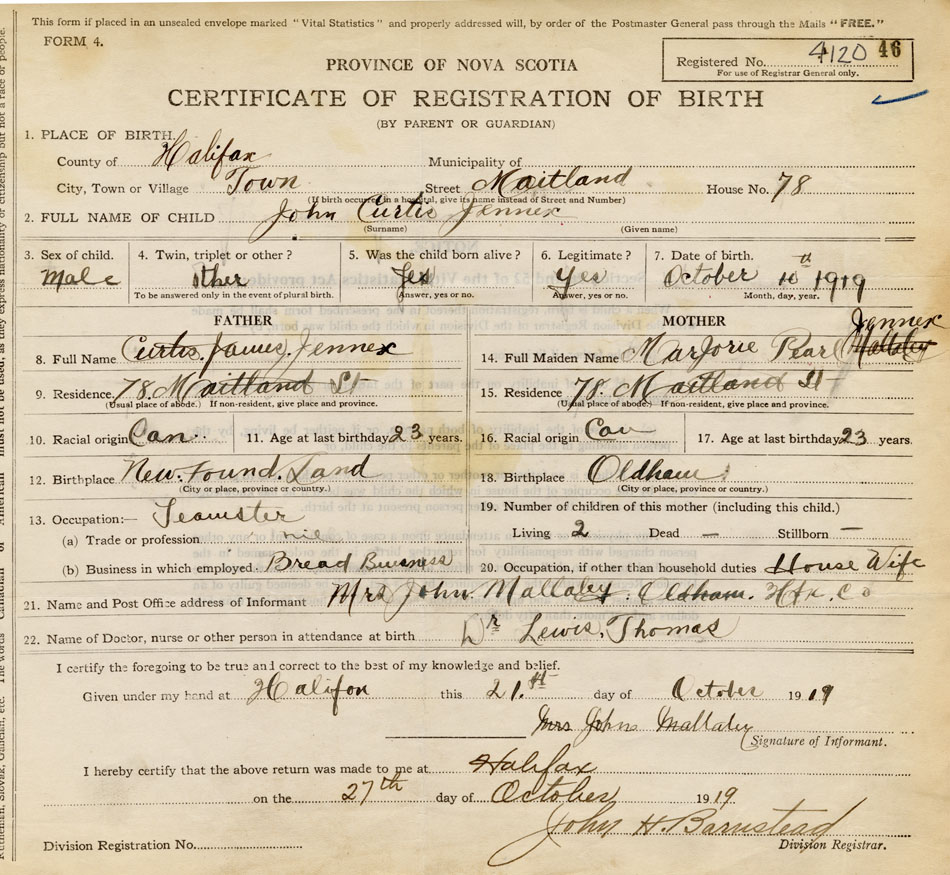 This form if placed in an unsealed envelope marked "Vital Statistics" and properly addressed will, by order of the Postmaster General pass through the Mails "FREE."
FORM 4.
Registered No. 4120 46
For use of Registrar General only.
PROVINCE OF NOVA SCOTIA
CERTIFICATE OF REGISTRATION OF BIRTH
(BY PARENT OR GUARDIAN)
1. PLACE OF BIRTH.
County of Halifax Municipality of
City, Town or Village Town Street Maitland House No. 78
(If birth occurred in a hospital, give its name instead of Street and Number)
2. FULL NAME OF CHILD John Curtis Jennex
(Surname) (Given name)
3. Sex of child. 4. Twin, triplet or other? 5. Was the child born alive? 6. Legitimate? 7. Date of birth.
Male other Yes Yes October 10th 1919
To be answered only in the event of plural birth. Answer, yes or no. Answer, yes or no. Month, day, year.
FATHER MOTHER Jennex
8. Full Name Curtis James Jennex 14. Full Maiden Name Marjorie Pearl Mallaley
9. Residence 78. Maitland St 15. Residence 78. Maitland St
(Usual place of abode.) If non-resident, give place and province. (Usual place of abode.) If non-resident, give place and province.
10. Racial origin Can 11. Age at last birthday 23 years. 16. Racial origin Can 17. Age at last birthday 23 years.
12. Birthplace New. Found. Land 18. Birthplace Oldham
(City or place, province or country.) (City or place, province or country.)
13. Occupation:— Teamster 19. Number of children of this mother (including this child.)
(a) Trade or profession nil Living 2 Dead — Stillborn —
(b) Business in which employed Bread Business 20. Occupation, if other than household duties House Wife
21. Name and Post Office address of Informant Mrs John. Mallaley. Oldham. Hfx. Co
22. Name of Doctor, nurse or other person in attendance at birth. Dr Lewis. Thomas
I certify the foregoing to be true and correct to the best of my knowledge and belief.
Given under my hand at Halifax this 21.st day of October 1919
Mrs John Mallaley
Signature of Informant.
I hereby certify that the above return was made to me at Halifax
on the 27th day of October 1919.
John H. Barnstead
Division Registration No. Division Registrar.